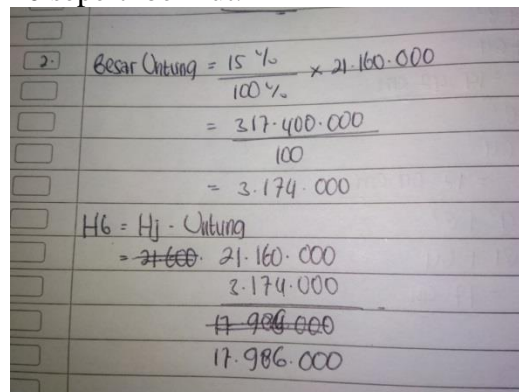 2. Besar Untung = 15 % / 100 % x 21.160.000
= 317.400.000 / 100
= 3.174.000
HB = Hj - Untung
= 21.600. 21.160.000
3.174.000 -
17.986.000